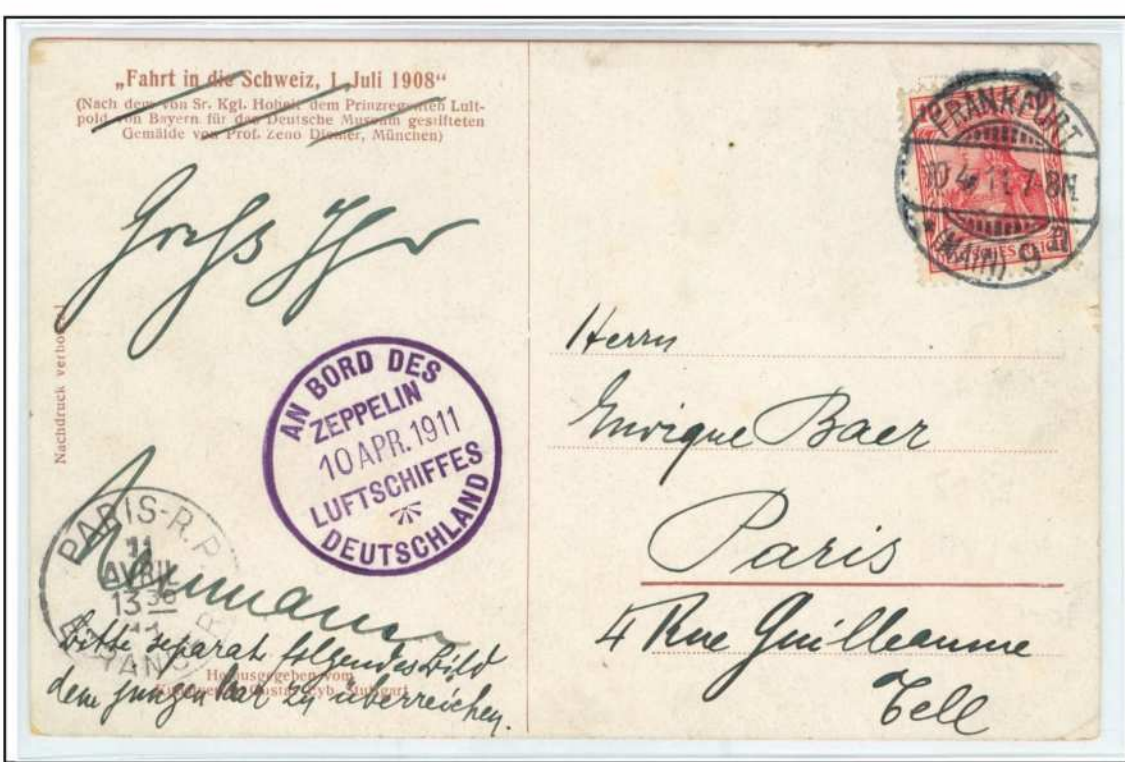 „Fahrt in die Schweiz, 1. Juli 1908“
(Nach dem von Sr. Kgl. Hoheit dem Prinzregenten Luit-
pold von Bayern für das Deutsche Museum gestifteten
Gemälde von Prof. Zeno Diemer, München)
Nachdruck verboten!
AN BORD DES
ZEPPELIN
10 APR. 1911
LUFTSCHIFFES
DEUTSCHLAND
PARIS-R.P.
11
AVRIL
13 30
ETRANGER
Bitte separat folgendes Bild
dem jungen zu überreichen.
Herausgegeben vom
Gustav Eyb, Stuttgart
FRANKFURT
10.4.11.7-8N
* (MAIN) 9
DEUTSCHES REICH
Herrn
Enrique Baer
Paris
4 Rue Guilleaume
Tell